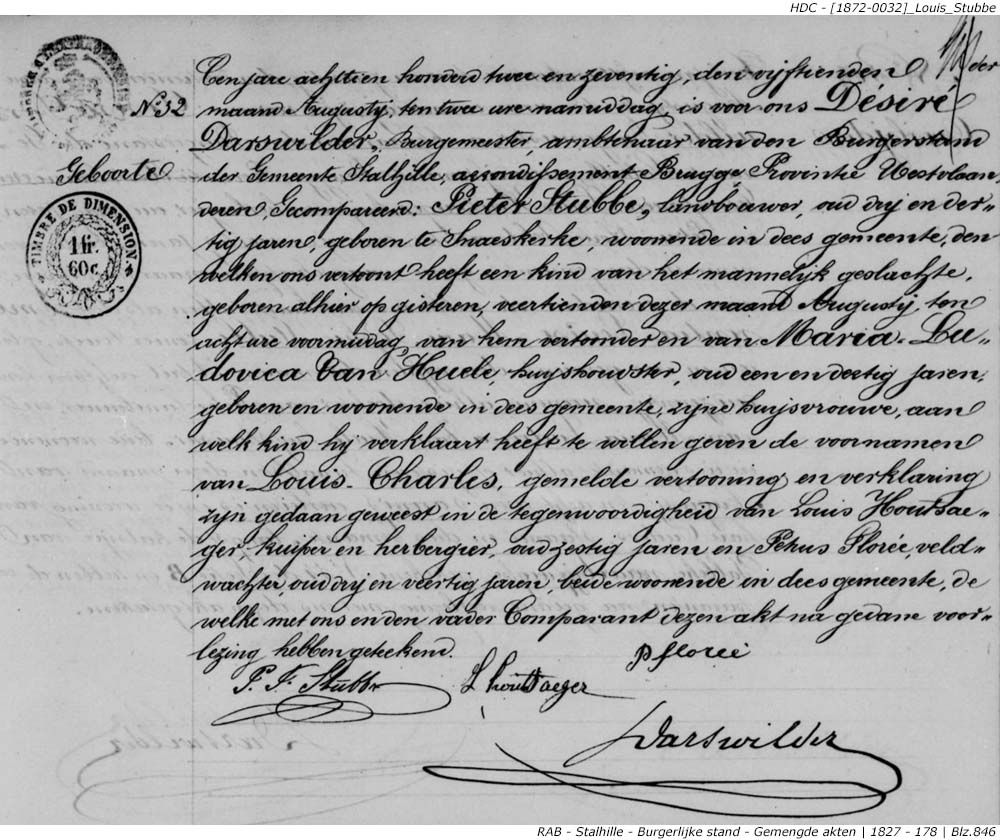 HDC - [1872-0032]_Louis_Stubbe
Een jare achttien honderd twee en zeventig, den vijftienden der
N° 32 maand Augustij, ten twee ure namiddag, is voor ons Désiré
Darswilder, Burgemeester ambtenaar van den Burgerstand
Geboorte der Gemeente Stalhille, arrondissement Brugge, Provintie Westvlaan„
deren, Gecompareerd: Pieter Stubbe, landbouwer, oud drij en der„
TIMBRE DE DIMENSION
1 fr.
60 c.
tig jaren, geboren te Snaeskerke, woonende in dees gemeente, den
welken ons vertoont heeft een kind van het mannelijk geslachte,
geboren alhier op gisteren, veertienden dezer maand Augustij, ten
acht ure voormiddag, van hem vertoonder en van Maria Lu„
dovica Van Huele, huijshoudster, oud een en dertig jaren,
geboren en woonende in dees gemeente, zijne huijsvrouwe, aan
welk kind hij verklaart heeft te willen geven de voornamen
van Louis-Charles, gemelde vertooning en verklaring
zijn gedaan geweest in de tegenwoordigheid van Louis Houtsae„
ger, kuiper en herbergier, oud zestig jaren en Petrus Florée, veld„
wachter, oud drij en veertig jaren, beide woonende in dees gemeente, de
welke met ons en den vader Comparant dezen akt na gedane voor„
lezing hebben geteekend.
P florée
P. F. Stubbe L houtsaeger
Darswilder
RAB - Stalhille - Burgerlijke stand - Gemengde akten | 1827 - 178 | Blz.846